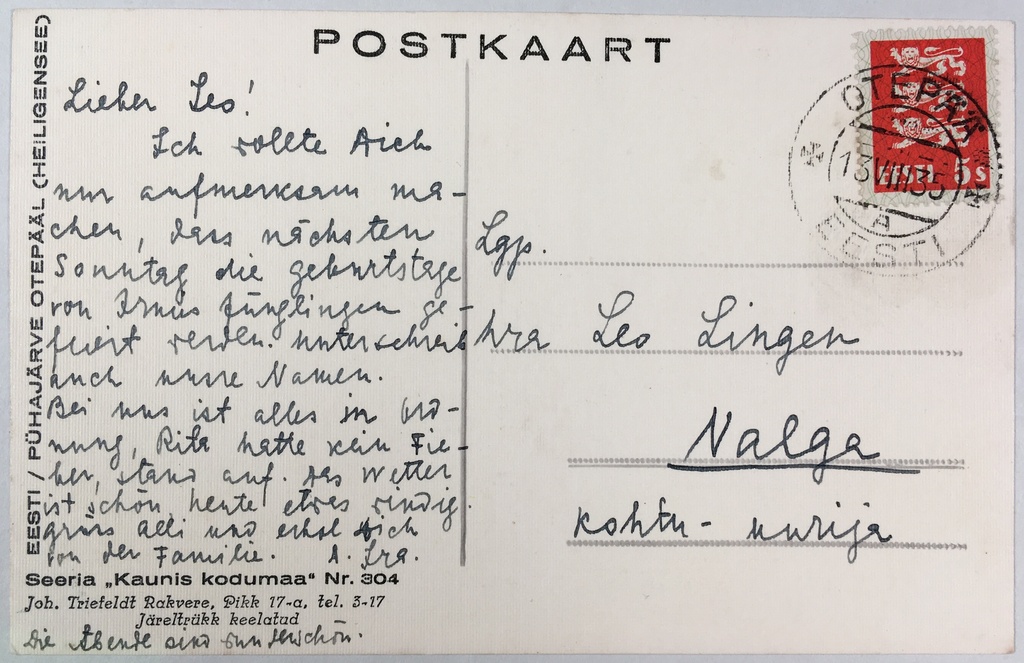 POSTKAART
EESTI / PÜHAJÄRVE OTEPÄÄL (HEILIGENSEE)
Lieber Leo!
Ich wollte Dich
nur aufmerksam ma-
chen, dass nächsten
Sonntag die geburtstage
von Jünglingen ge-
feiert werden. unterschreib
auch unsre Namen.
Bei uns ist alles in Ord-
nung, Rita hatte kein Fie-
ber, stand auf. Das Wetter
ist schön, heute etwas windig.
grüss alli und erhol Dich
von der Familie.
Seeria „Kaunis kodumaa" Nr. 304
Joh. Triefeldt Rakvere, Pikk 17-a, tel. 3-17
Järeltrükk keelatud
Die Abende sind wunderschön.
OTEPÄÄ
13 VIII 35
A
EESTI
EESTI 5 s
Lgp.
hra Leo Lingen
Valga
kohtu-uurija